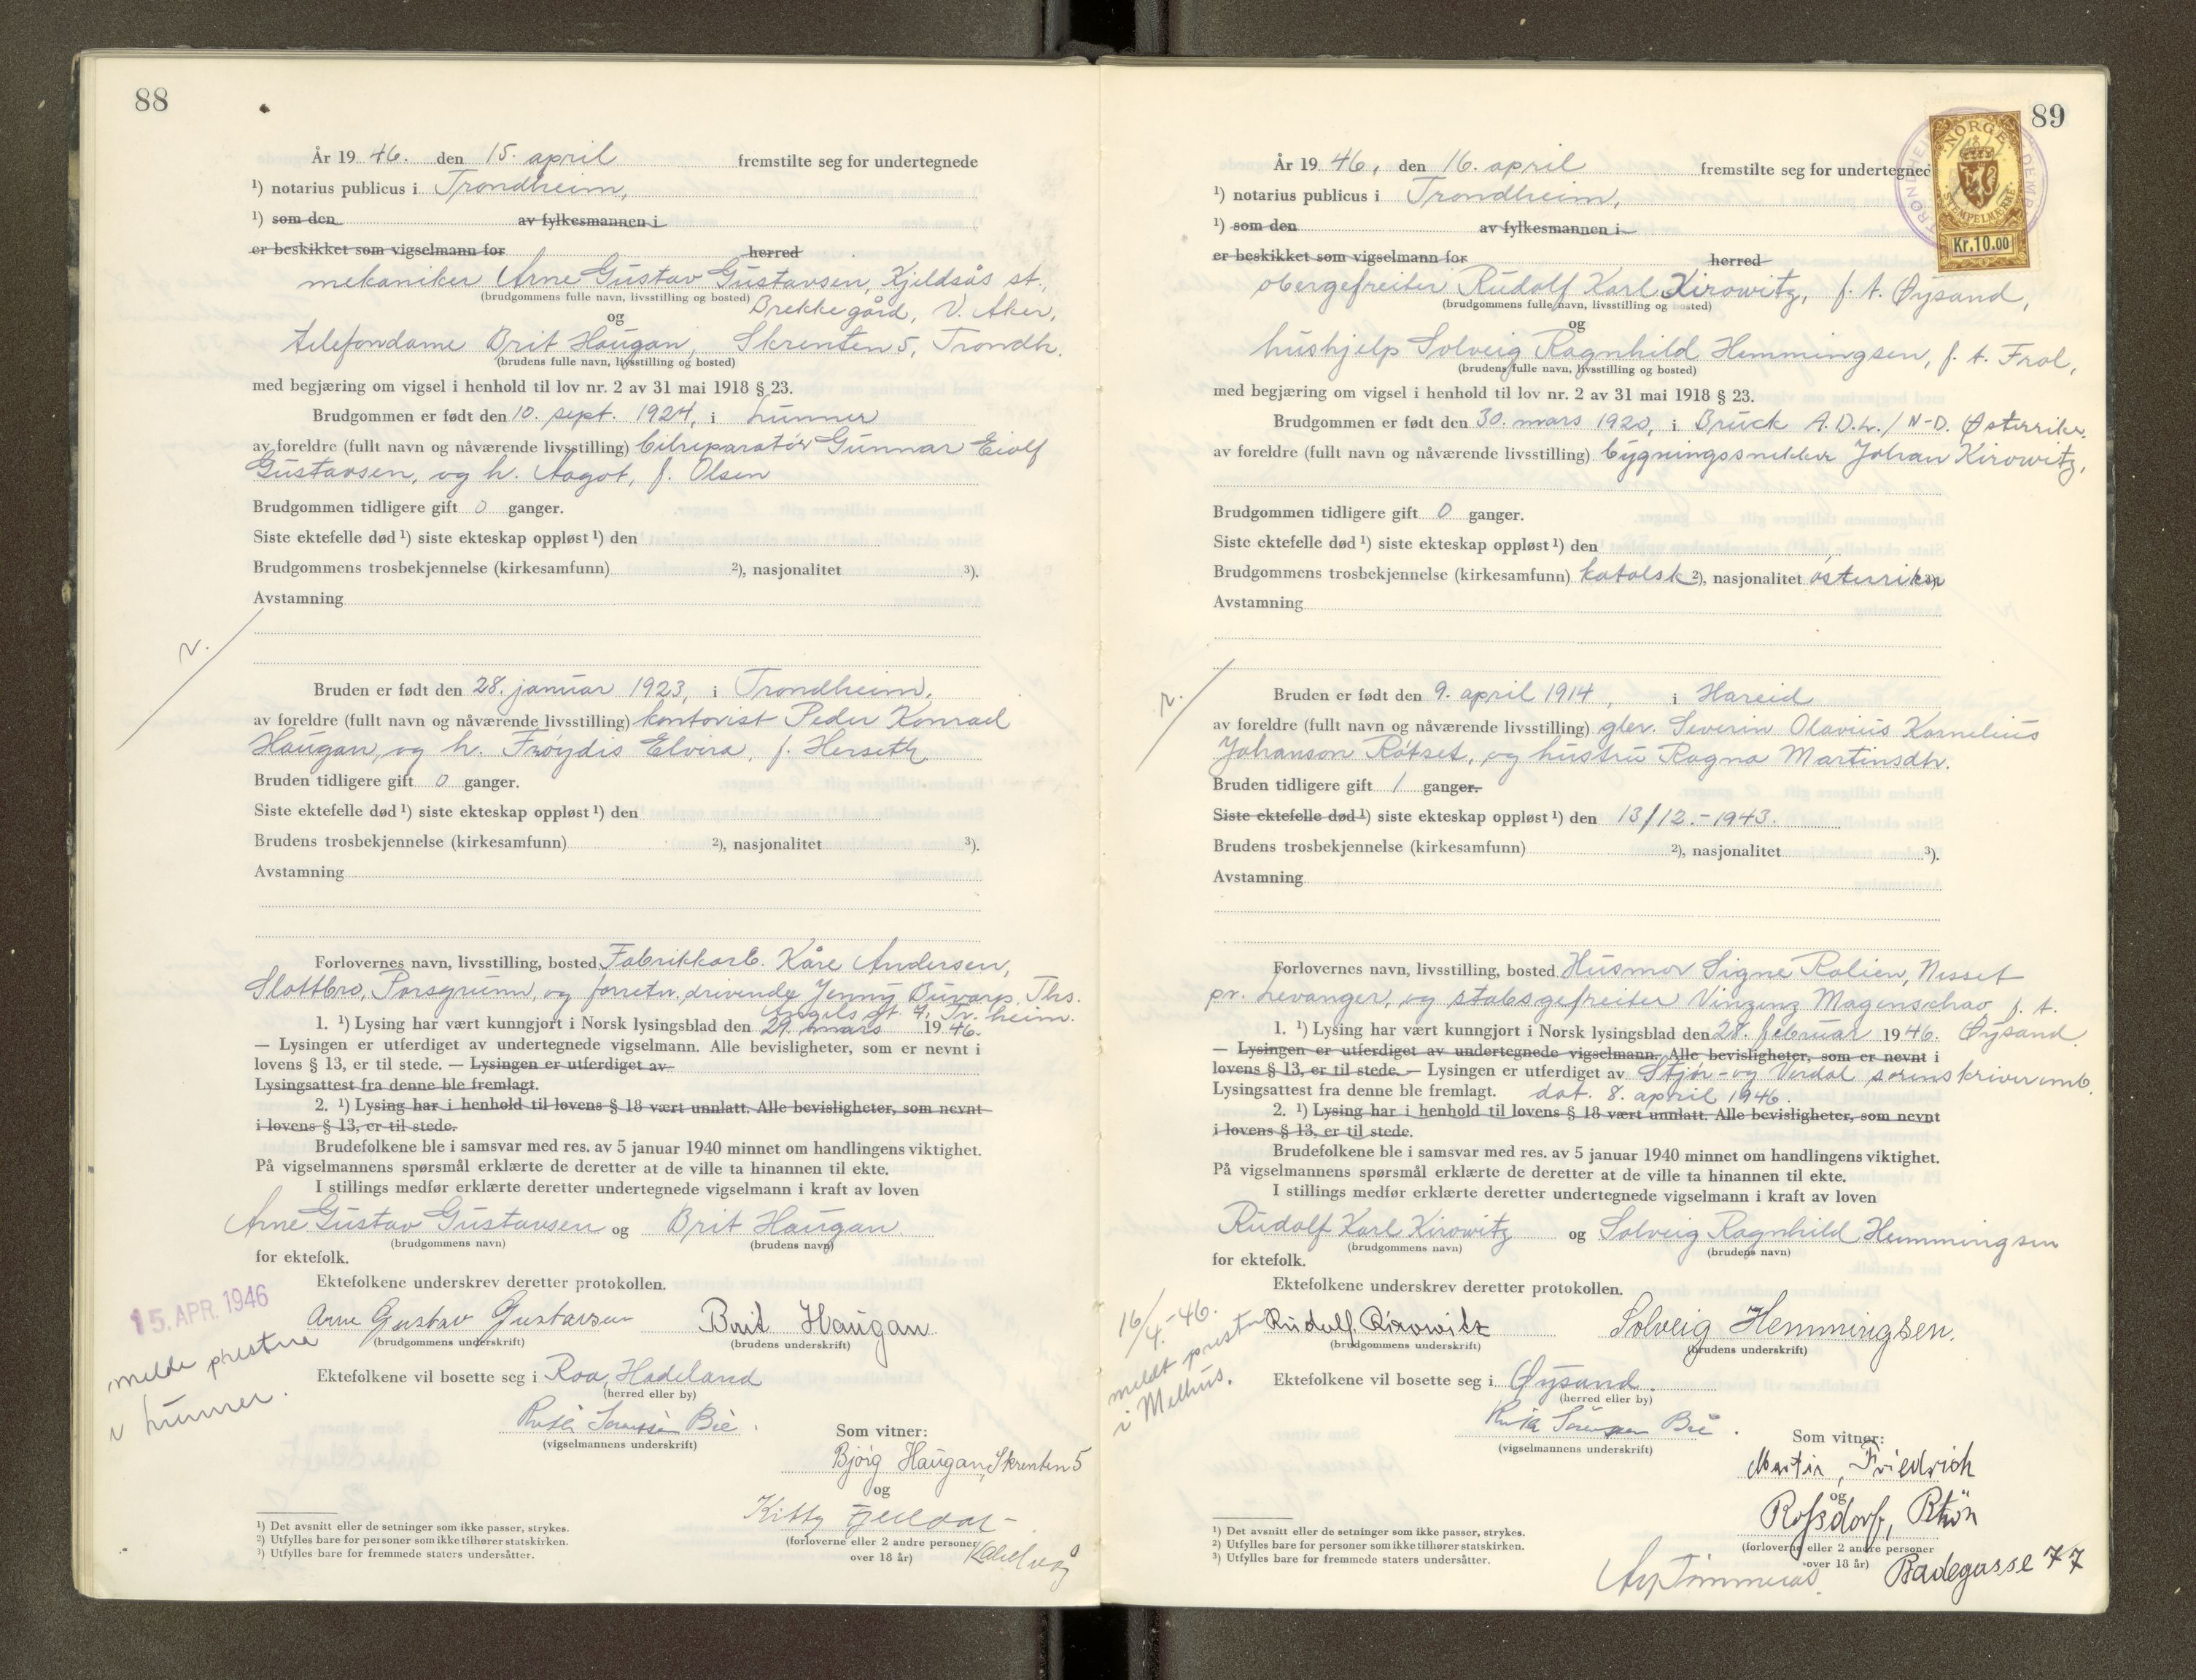 88
År 19 46. den 15. april fremstilte seg for undertegnede
¹) notarius publicus i Trondheim,
¹) som den av fylkesmannen i
er beskikket som vigselmann for herred
mekaniker Arne Gustav Gustavsen, Kjeldsås st.,
(brudgommens fulle navn, livsstilling og bosted) Brekke gård, V. Aker,
og
telefondame Brit Haugan, Skrenten 5, Trondh.
(brudens fulle navn, livsstilling og bosted)
med begjæring om vigsel i henhold til lov nr. 2 av 31 mai 1918 § 23.
Brudgommen er født den 10. sept. 1924, i Lunner
av foreldre (fullt navn og nåværende livsstilling) bilreparatør Gunnar Eiolf
Gustavsen, og h. Aagot, f. Olsen
Brudgommen tidligere gift 0 ganger.
Siste ektefelle død ¹) siste ekteskap oppløst ¹) den
Brudgommens trosbekjennelse (kirkesamfunn) ²), nasjonalitet ³).
Avstamning
Bruden er født den 28. januar 1923, i Trondheim,
av foreldre (fullt navn og nåværende livsstilling) kontorist Peder Konrad
Haugan, og h. Frøydis Elvira, f. Herseth
Bruden tidligere gift 0 ganger.
Siste ektefelle død ¹) siste ekteskap oppløst ¹) den
Brudens trosbekjennelse (kirkesamfunn) ²), nasjonalitet ³).
Avstamning
Forlovernes navn, livsstilling, bosted Fabrikkarb. Kåre Andersen,
Slottbro, Porsgrunn, og forretn.drivende Jenny Buvarp, Ths.
Angels gt. 9, Tr.heim.
1. ¹) Lysing har vært kunngjort i Norsk lysingsblad den 29. mars 19 46.
— Lysingen er utferdiget av undertegnede vigselmann. Alle bevisligheter, som er nevnt i
lovens § 13, er til stede. — Lysingen er utferdiget av
Lysingsattest fra denne ble fremlagt.
2. ¹) Lysing har i henhold til lovens § 18 vært unnlatt. Alle bevisligheter, som nevnt
i lovens § 13, er til stede.
Brudefolkene ble i samsvar med res. av 5 januar 1940 minnet om handlingens viktighet.
På vigselmannens spørsmål erklærte de deretter at de ville ta hinannen til ekte.
I stillings medfør erklærte deretter undertegnede vigselmann i kraft av loven
Arne Gustav Gustavsen og Brit Haugan.
(brudgommens navn) (brudens navn)
for ektefolk.
Ektefolkene underskrev deretter protokollen.
15. APR. 1946
Arne Gustav Gustavsen Brit Haugan
(brudgommens underskrift) (brudens underskrift)
melde prestene
i Lunner.
Ektefolkene vil bosette seg i Roa, Hadeland
(herred eller by)
Bie
(vigselmannens underskrift)
Som vitner:
Bjørg Haugan, Skrenten 5
og
Kitty
(forloverne eller 2 andre personer
over 18 år)
¹) Det avsnitt eller de setninger som ikke passer, strykes.
²) Utfylles bare for personer som ikke tilhører statskirken.
³) Utfylles bare for fremmede staters undersåtter.
89
NORGE
STEMPELMERKE
Kr.10.00
År 19 46, den 16. april fremstilte seg for undertegned
¹) notarius publicus i Trondheim,
¹) som den av fylkesmannen i
er beskikket som vigselmann for herred
obergefreiter Rudolf Karl Kirowitz, f. t. Øysand,
(brudgommens fulle navn, livsstilling og bosted)
og
hushjelp Solveig Ragnhild Hemmingsen, f. t. Frol,
(brudens fulle navn, livsstilling og bosted)
med begjæring om vigsel i henhold til lov nr. 2 av 31 mai 1918 § 23.
Brudgommen er født den 30. mars 1920, i Bruck A.D.L./N-D. Østerrike,
av foreldre (fullt navn og nåværende livsstilling) bygningssnekker Johan Kirowitz,
Brudgommen tidligere gift 0 ganger.
Siste ektefelle død ¹) siste ekteskap oppløst ¹) den
Brudgommens trosbekjennelse (kirkesamfunn) katolsk ²), nasjonalitet østerriker ³).
Avstamning
Bruden er født den 9. april 1914, i Hareid
av foreldre (fullt navn og nåværende livsstilling) glsv. Severin Olavius Kornelius
Johanson Røtset, og hustru Ragna Martinsdtr.
Bruden tidligere gift 1 ganger.
Siste ektefelle død ¹) siste ekteskap oppløst ¹) den 13/12.-1943.
Brudens trosbekjennelse (kirkesamfunn) ²), nasjonalitet ³).
Avstamning
Forlovernes navn, livsstilling, bosted Husmor Signe Rolien, Nesset
pr. Levanger, og stabsgefreiter Vinzenz Magenschav f. t.
1. ¹) Lysing har vært kunngjort i Norsk lysingsblad den 28. februar 19 46. Øysand.
— Lysingen er utferdiget av undertegnede vigselmann. Alle bevisligheter, som er nevnt i
lovens § 13, er til stede. — Lysingen er utferdiget av Stjør- og Verdal sorenskriveremb.
Lysingsattest fra denne ble fremlagt. dat. 8. april 1946.
2. ¹) Lysing har i henhold til lovens § 18 vært unnlatt. Alle bevisligheter, som nevnt
i lovens § 13, er til stede.
Brudefolkene ble i samsvar med res. av 5 januar 1940 minnet om handlingens viktighet.
På vigselmannens spørsmål erklærte de deretter at de ville ta hinannen til ekte.
I stillings medfør erklærte deretter undertegnede vigselmann i kraft av loven
Rudolf Karl Kirowitz og Solveig Ragnhild Hemmingsen
(brudgommens navn) (brudens navn)
for ektefolk.
Ektefolkene underskrev deretter protokollen.
16/4.-46.
meldt presten
i Melhus.
Rudolf Kirowitz Solveig Hemmingsen.
(brudgommens underskrift) (brudens underskrift)
Ektefolkene vil bosette seg i Øysand.
(herred eller by)
Bie.
(vigselmannens underskrift)
Som vitner:
Martin Friedrich
og
Roßdorf, Rhön
(forloverne eller 2 andre personer
over 18 år) Badegasse 77
¹) Det avsnitt eller de setninger som ikke passer, strykes.
²) Utfylles bare for personer som ikke tilhører statskirken.
³) Utfylles bare for fremmede staters undersåtter.